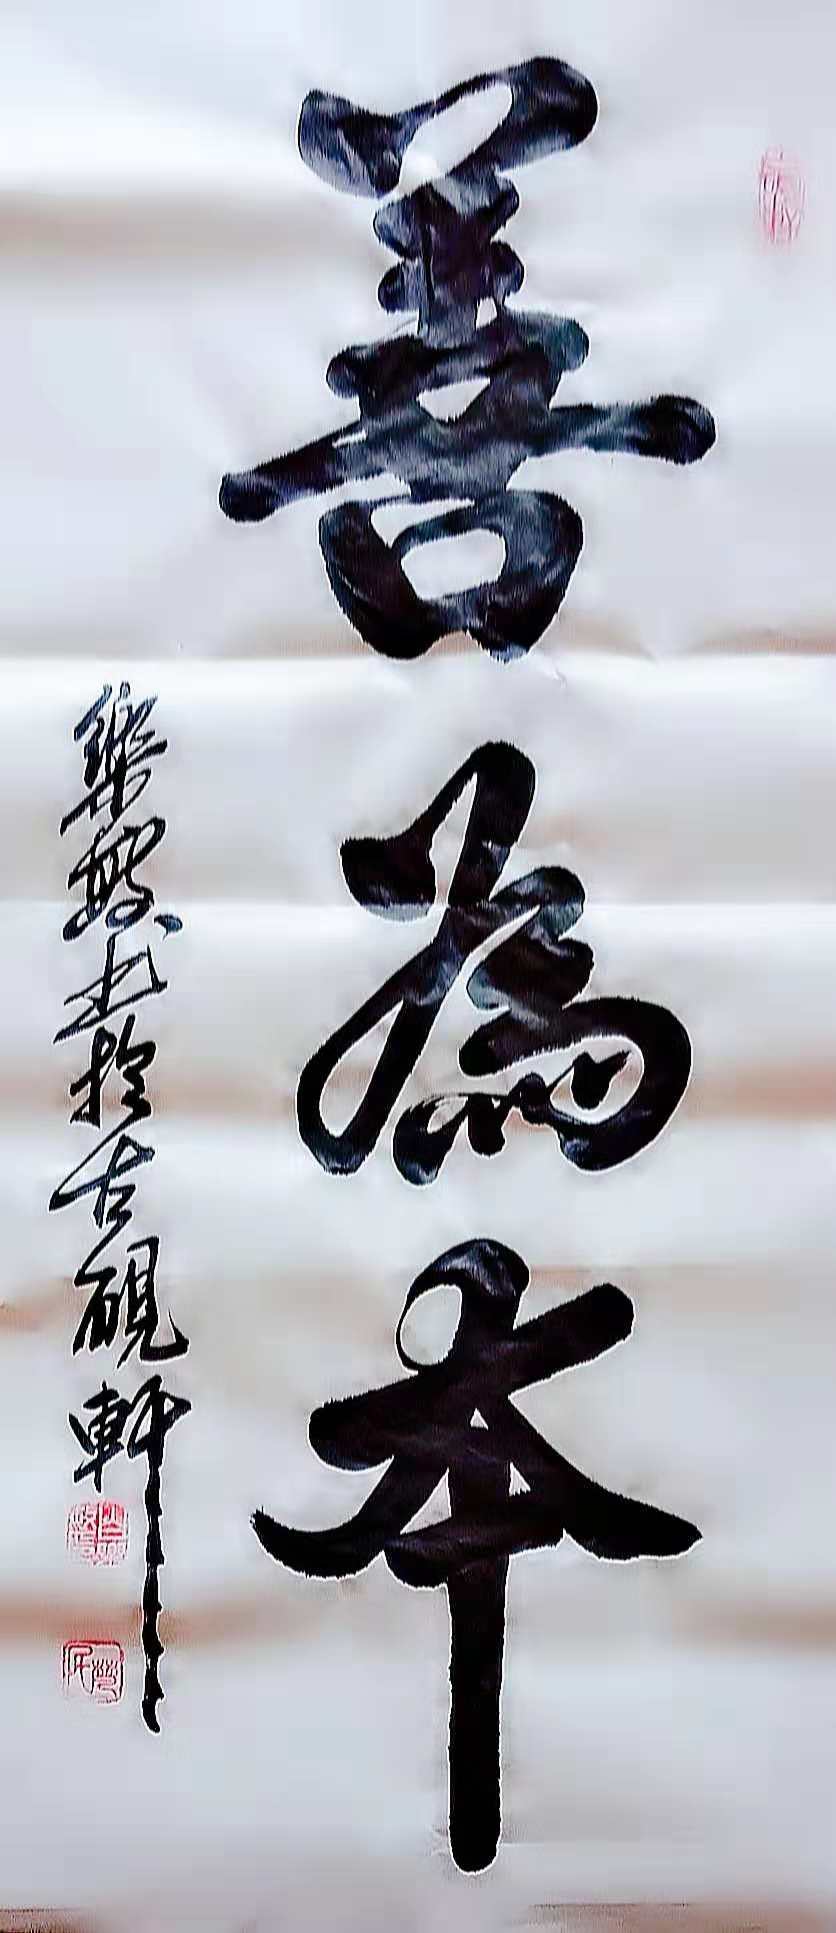 善為本
樂敏書於古硯軒